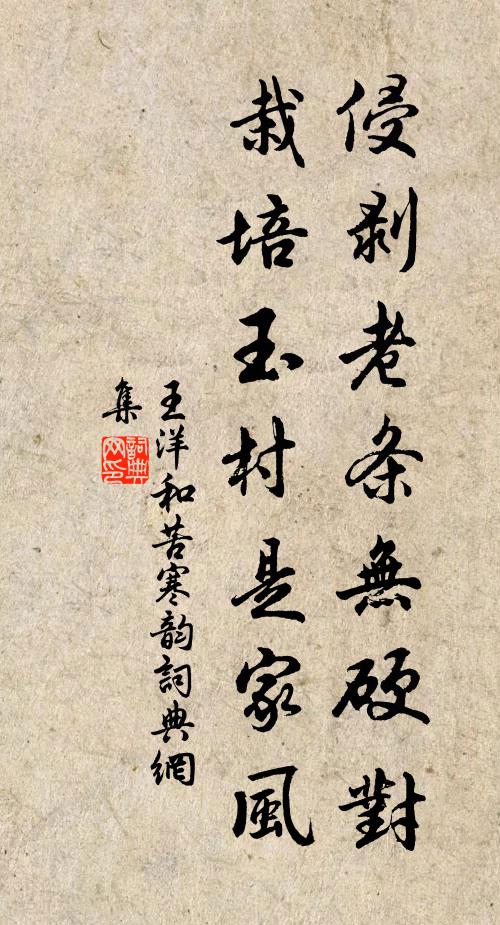 侵剥老条無硬對
栽培玉村是家風
王洋和苦寒韵詞典網
集
詞典
网印